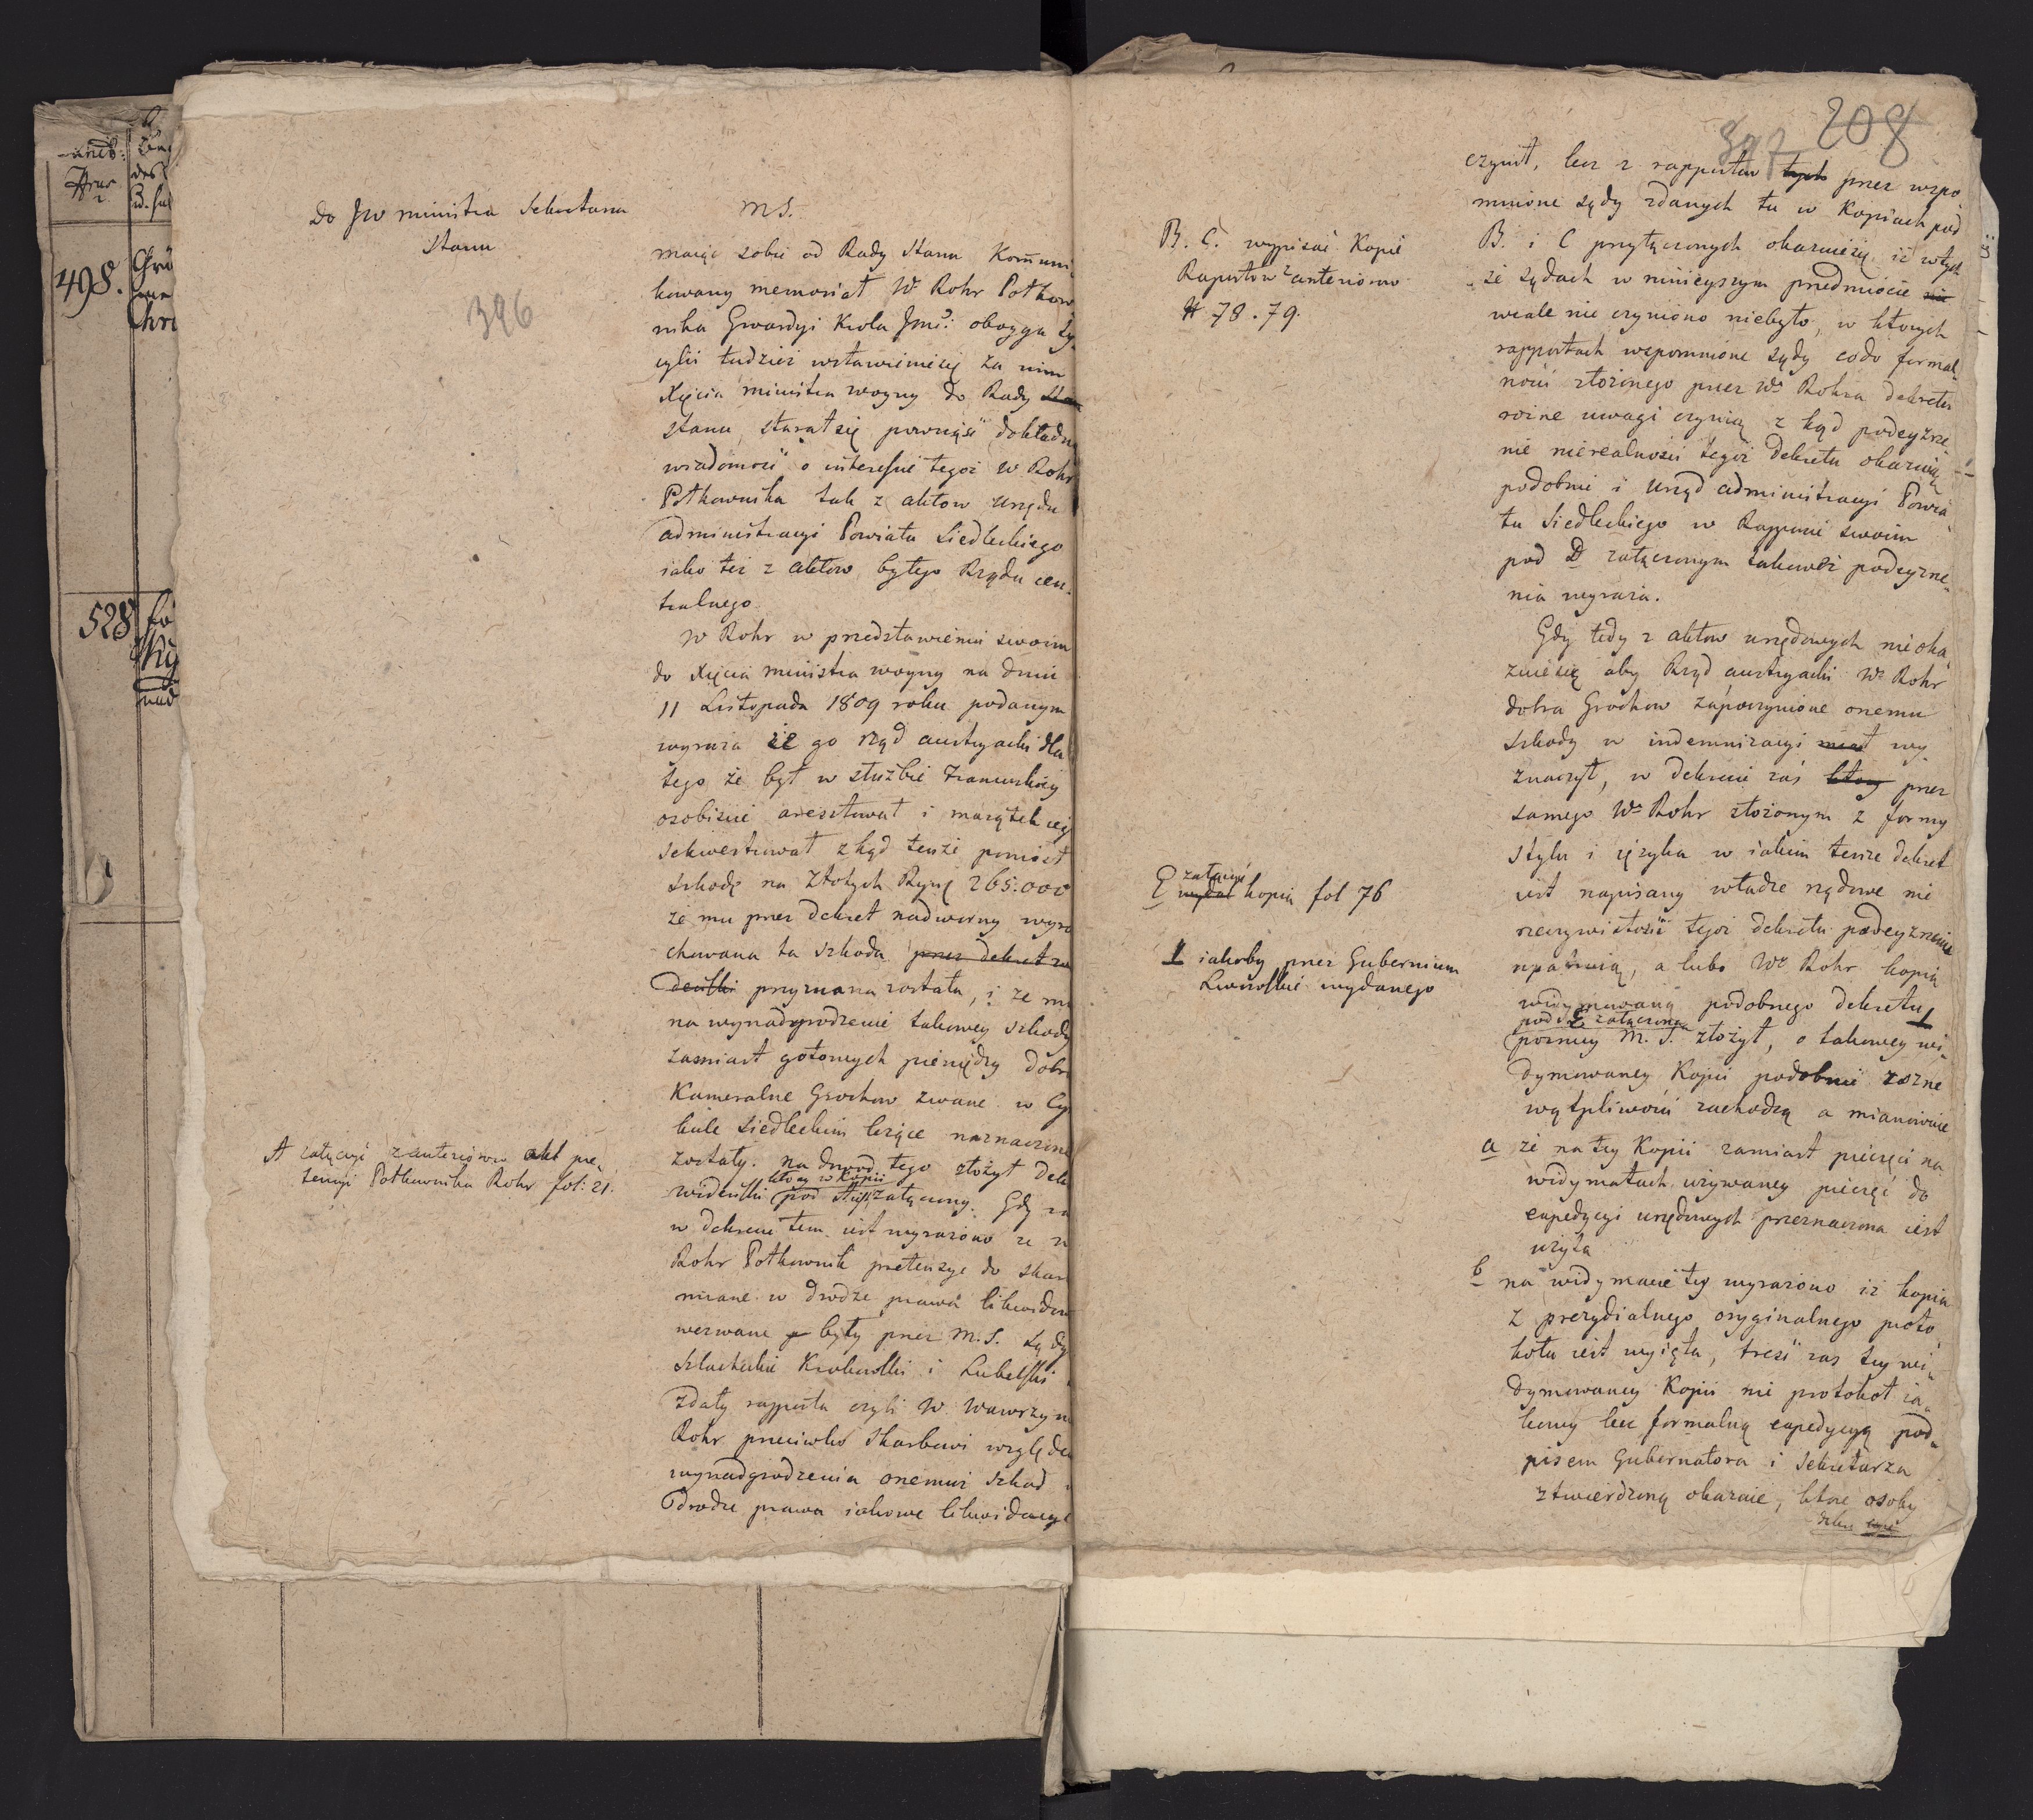 498.
528
Do JW ministra Sekretarza
Stanu
396
A załączyć z anteriorów akt pre„
tensyi Połkownika Rohr fol: 21.
MS.
maiąc sobie od Rady Stanu Kom̄uni„
kowany memoriał W Rohr Połkow
nika Gwardyi Krola Jmci oboyga Sy„
cylii tudzież wstawienie się za nim
Xięcia ministra woyny do Rady Stan
Stanu, starał się powziąść dokładną
wiadomość o interessie tegoż W Rohr
Połkownika tak z aktow Urzędu
administracyi Powiatu Siedleckiego
iako też z aktow byłego Rządu cen„
tralnego.
W Rohr w przedstawieniu swoim
do Xięcia ministra woyny na dniu
11 Listopada 1809 roku podanym
wyraża iż go rząd austryacki dla
tego że był w służbie Francuskiey
osobiście aresztował i maiątek ieg
sekwestrował zkąd tenże poniosł
szkodę na Złotych Ryn̄: 265.000
że mu przez dekret nadworny wyra
chowana ta szkoda przez dekret na
deński przyznana została, i że mu
na wynadgrodzenie takowey szkody
zamiast gotowych pieniędzy dobra
Kameralne Grochow zwane w Cyr
kule Siedleckim leżące naznaczone
zostały. na dowod tego złożył dek
wideński który w kopii pod A iest załączony. Gdy za
w dekrecie tem iest wyrażono że W
Rohr Połkownik pretensye do skar
miane w drodze prawa likwidow
wezwane p były przez M.S. sądy
szlacheckie Krakowskie i Lubelskie
zdały rapporta czyli W Wawrzyn
Rohr przeciwko skarbowi względem
wynadgrodzenia onemuż szkod
w drodze prawa iakowe likwidacye
208
397
B. C. wypisać Kopie
Raportow z anteriorow
# 78. 79.
E załączyć wydał kopią fol 76
⊥ iakoby przez Gubernium
Lwowskie wydanego
czynił, lecz z rapportow tych przez wspo„
mnione sądy zdanych tu w Kopiach pod
B. i C przyłączonych okazuie się, iż w tych
że sądach w ninieyszym przedmiocie nic
wcale nie czyniono niebyło, w ktorych
rapportach wspomnione sądy co do formal„
ności złożonego przez Wo Rohra dekretu
rożne uwagi czynią z kąd podeyzrze
nie nierealności tegoż dekretu okazuią
podobnie i Urząd administracyi Powia„
tu Siedleckiego w Rapporcie swoim
pod D załączonym takoweż podeyzrze„
nia wyraża.
Gdy tedy z aktow urzędowych nieoka„
zuie się aby Rząd austryacki Wu Rohr
dobra Grochow za poczynione onemu
szkody w indemnizacyi miał wy„
znaczył, w dekrecie zaś ktory przez
samego Wo Rohr złożonym z formy
stylu i ięzyka w iakim tenże dekret
iest napisany władze rządowe nie
rzeczywistości tegoż dekretu podeyzrzenie
upatruią, a lubo Wy Rohr kopią
widymowaną podobnego dekretu ⊥
pod E załączoną
pozniey M. S. złożył, o takowey wi„
dymowaney Kopii podobnie rozne
wątpliwości zachodzą a mianowicie
a że na tey Kopii zamiast pieczęci na
widymatach używaney pieczęć do
expedycyi urzędowych przeznaczona iest
użyta
b na widymacie tey wyrażono iż kopia
z prezydialnego oryginalnego proto„
kołu iest wyięta, treść zas tey wi„
dymowaney Kopii nie protokoł ia„
kowy lecz formalną expedycyą pod„
pisem Gubernatora i Sekretarza
ztwierdzoną okazuie, ktore osoby